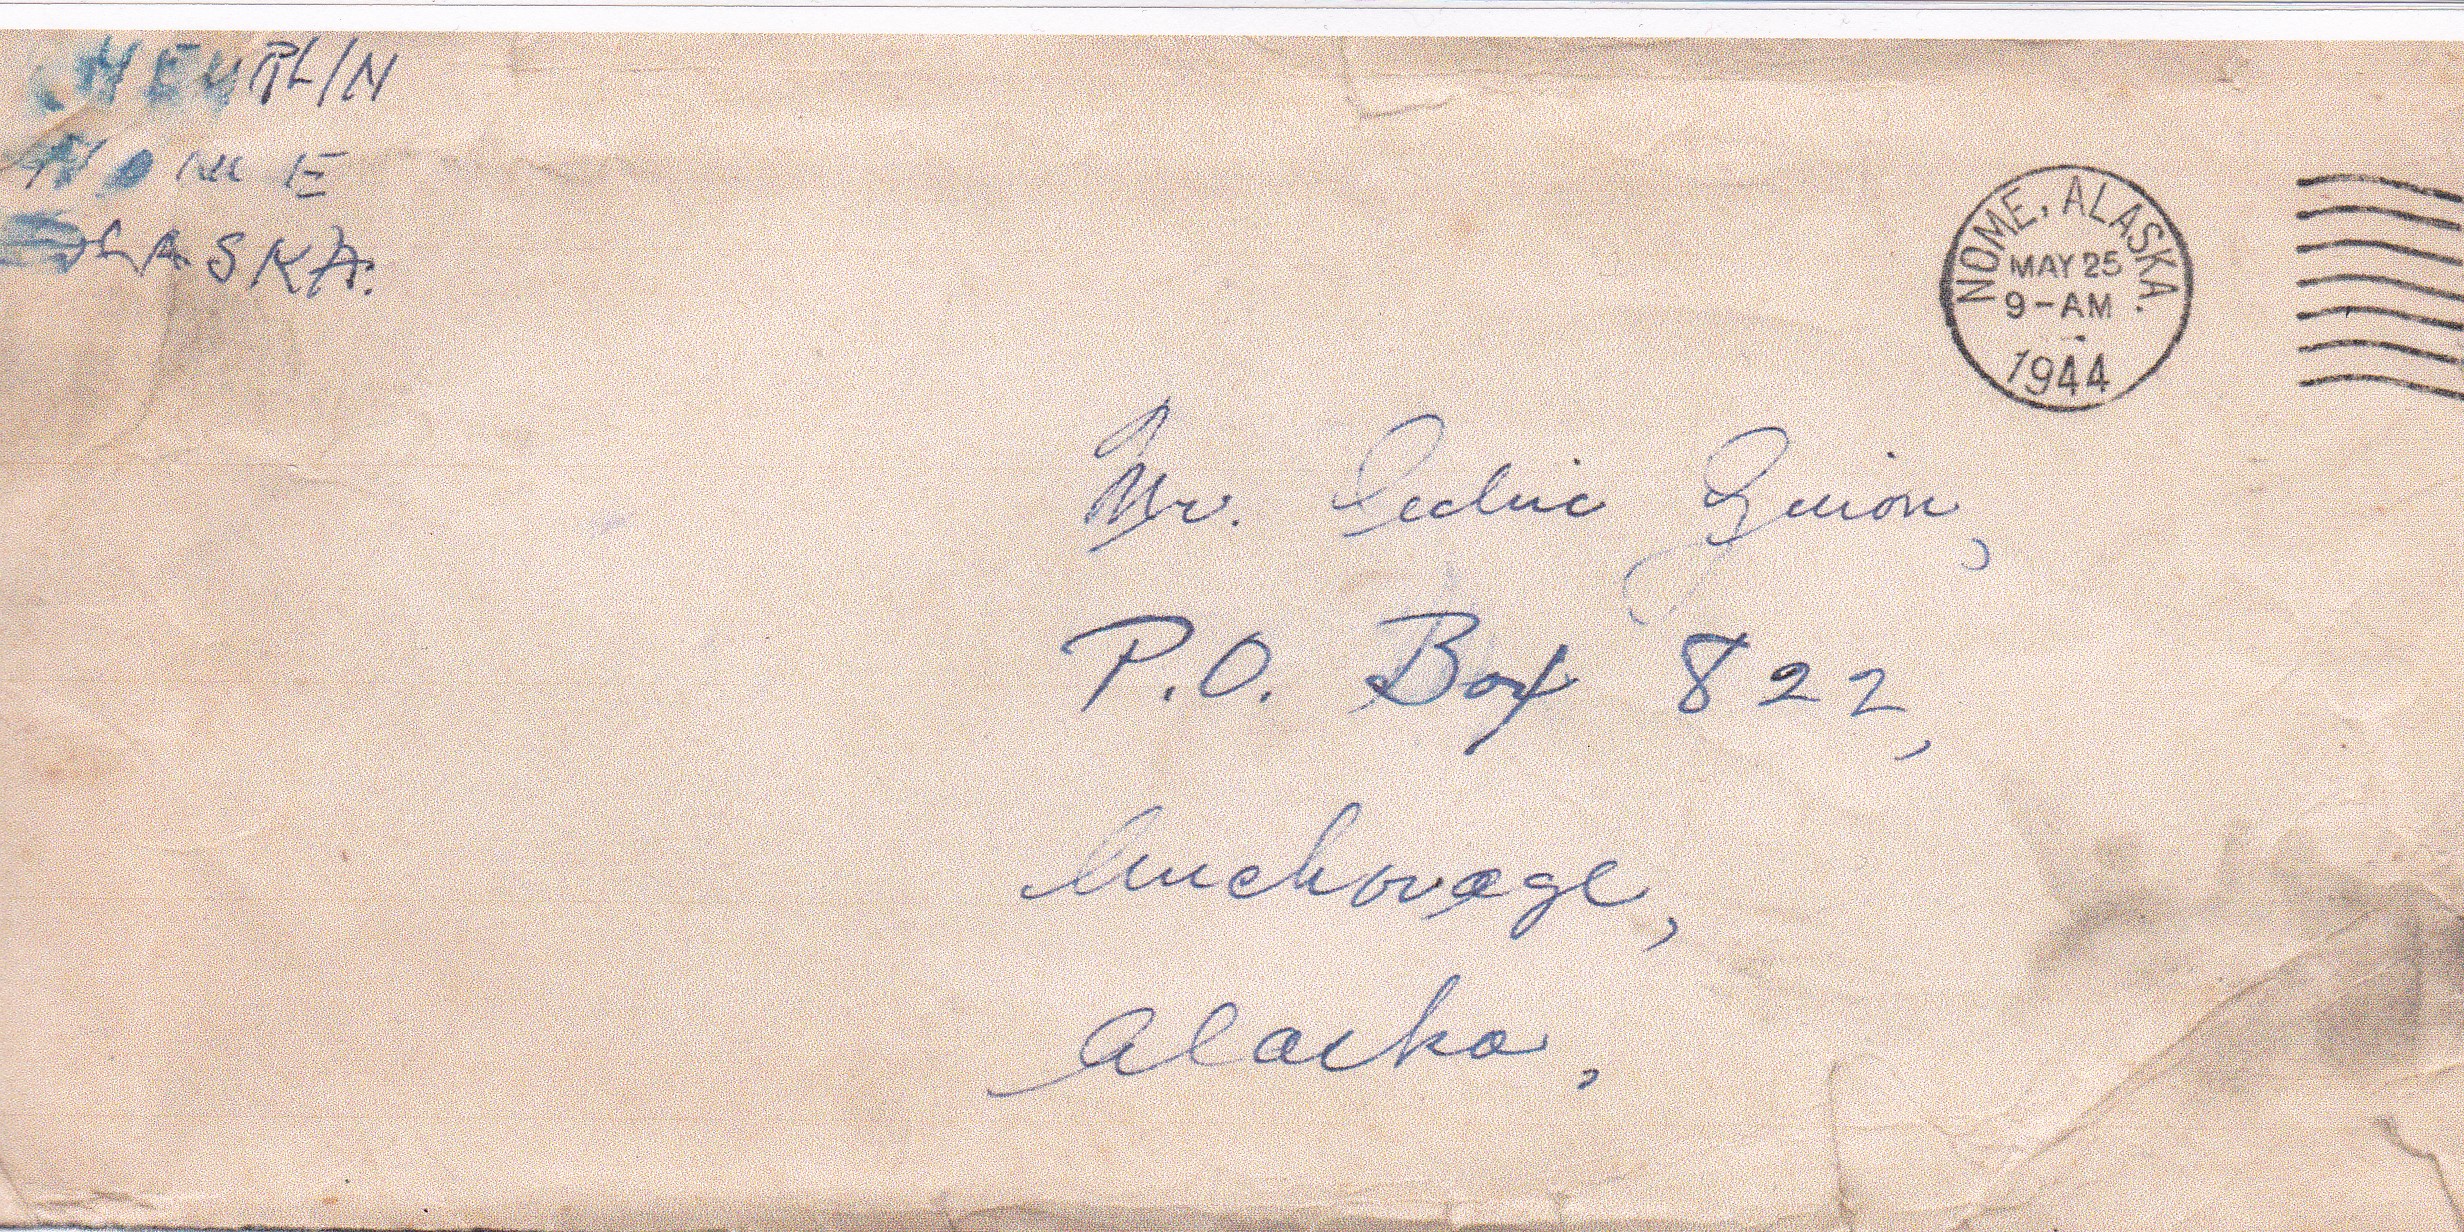 HEURLIN
NOME
ALASKA.
NOME, ALASKA.
MAY 25
9-AM
1944
Mr. Cedric Guion,
P.O. Box 822,
Anchorage,
Alaska.